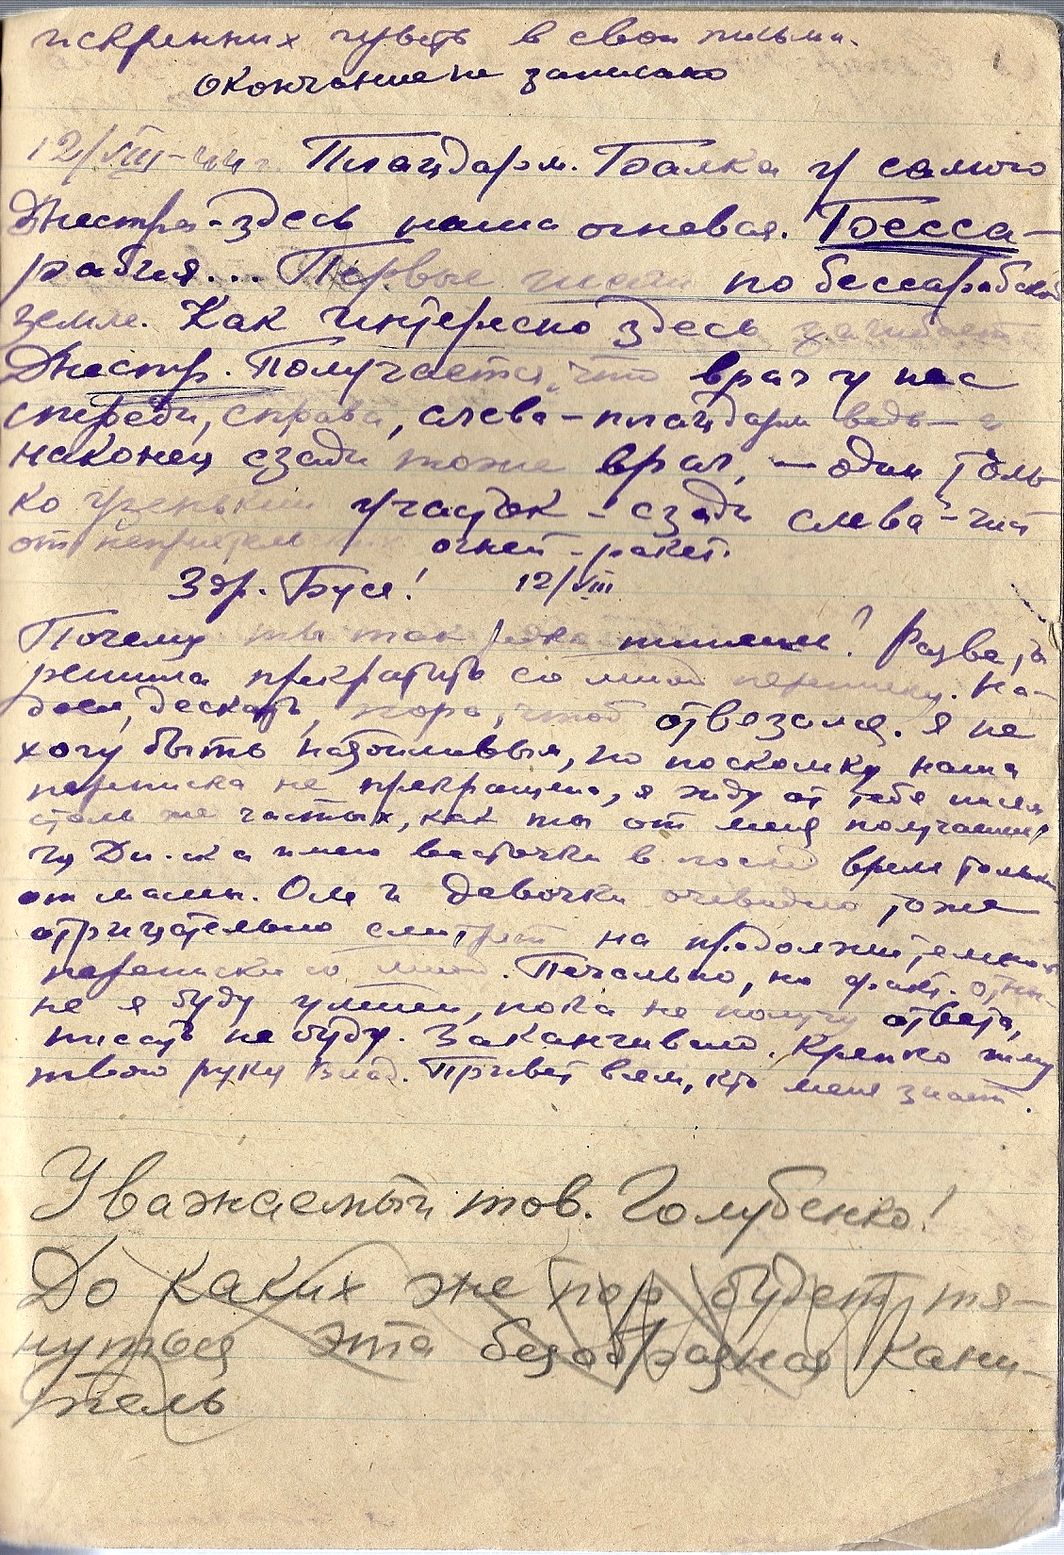 искренних чувств в свои письма.
окончание не записано
12/VIII-44 г. Плацдарм. Балка у самого
Днестра - здесь наша огневая. Бесса-
рабия... Первые шаги по бессарабской
земле. Как интересно здесь загибает
Днестр. Получается, что враг у нас
спереди, справа, слева - плацдарм ведь - и
наконец сзади тоже враг, - один толь
ко узенький участок - сзади слева - чист
от неприятельских огней - ракет.
Здр. Буся! 12/VIII
Почему ты так редко пишешь? Разве ты
решила прекратить со мной переписку. На-
доел, дескать, пора, чтоб отвязался. Я не
хочу быть назойливым, но поскольку наша
переписка не прекращена, я жду от тебя писем
столь же частых, как ты от меня получаешь,
Из Дн-ска имею весточки в послед время только
от мамы. Оля и девочки очевидно тоже
отрицательно смотрят на продолжительность
переписки со мной. Печально, но факт. Отны
не я буду умней, пока не получу ответа,
писать не буду. Заканчиваю. Крепко жму
твою руку Влад. Привет всем, кто меня знает.
Уважаемый тов. Голубенко!
До каких же пор будет тя-
нуться эта безобразная кани-
тель